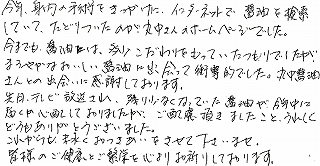 今年、身内の手術をきっかけに、インターネットで醤油を検索
していて、たどりついたのが丸中さんのホームページでした。
今までも、醤油には、多少こだわりをもっていたつもりでしたが
まろやかなおいしい醤油に出会って衝撃的でした。丸中醤油
さんとの出会いに感謝しております。
先日、テレビ放送され、残り少なくなっていた醤油が年中に
届くか心配しておりましたが、ご配慮頂きましたこと、うれしく
どうもありがとうございました。
これからも末永くおつきあいをさせて下さいませ。
皆様のご健康とご繁栄を心よりお祈りしております。